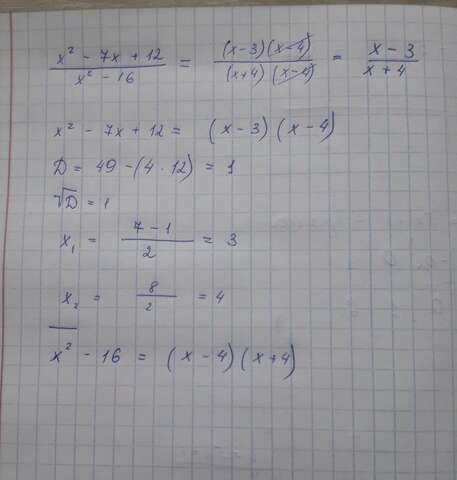 x² - 7x + 12 / x² - 16 = (x-3)(x-4) / (x+4)(x-4) = x - 3 / x + 4
x² - 7x + 12 = (x-3)(x-4)
D = 49 - (4 · 12) = 1
√D = 1
x₁ = 7 - 1 / 2 = 3
x₂ = 8 / 2 = 4
x² - 16 = (x-4)(x+4)